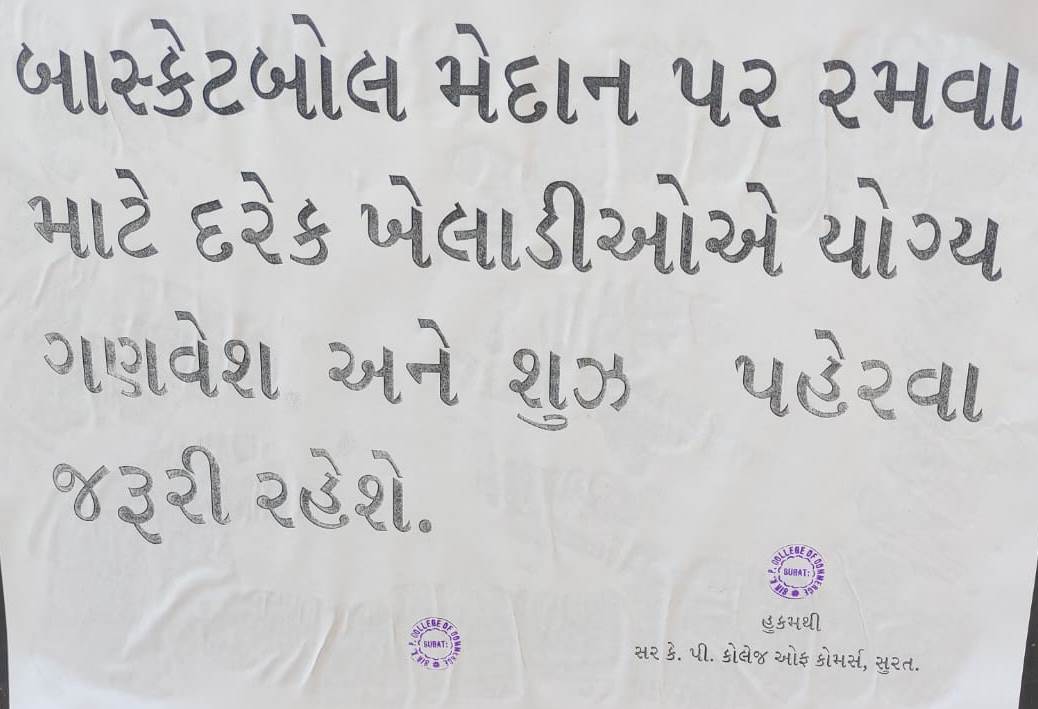 બાસ્કેટબોલ મેદાન પર રમવા
માટે દરેક ખેલાડીઓએ યોગ્ય
ગણવેશ અને શુઝ પહેરવા
જરૂરી રહેશે.
SIR K. P. COLLEGE OF COMMERCE
SURAT:
હુકમથી
સર કે. પી. કોલેજ ઓફ કોમર્સ, સુરત.
SIR K. P. COLLEGE OF COMMERCE
SURAT: